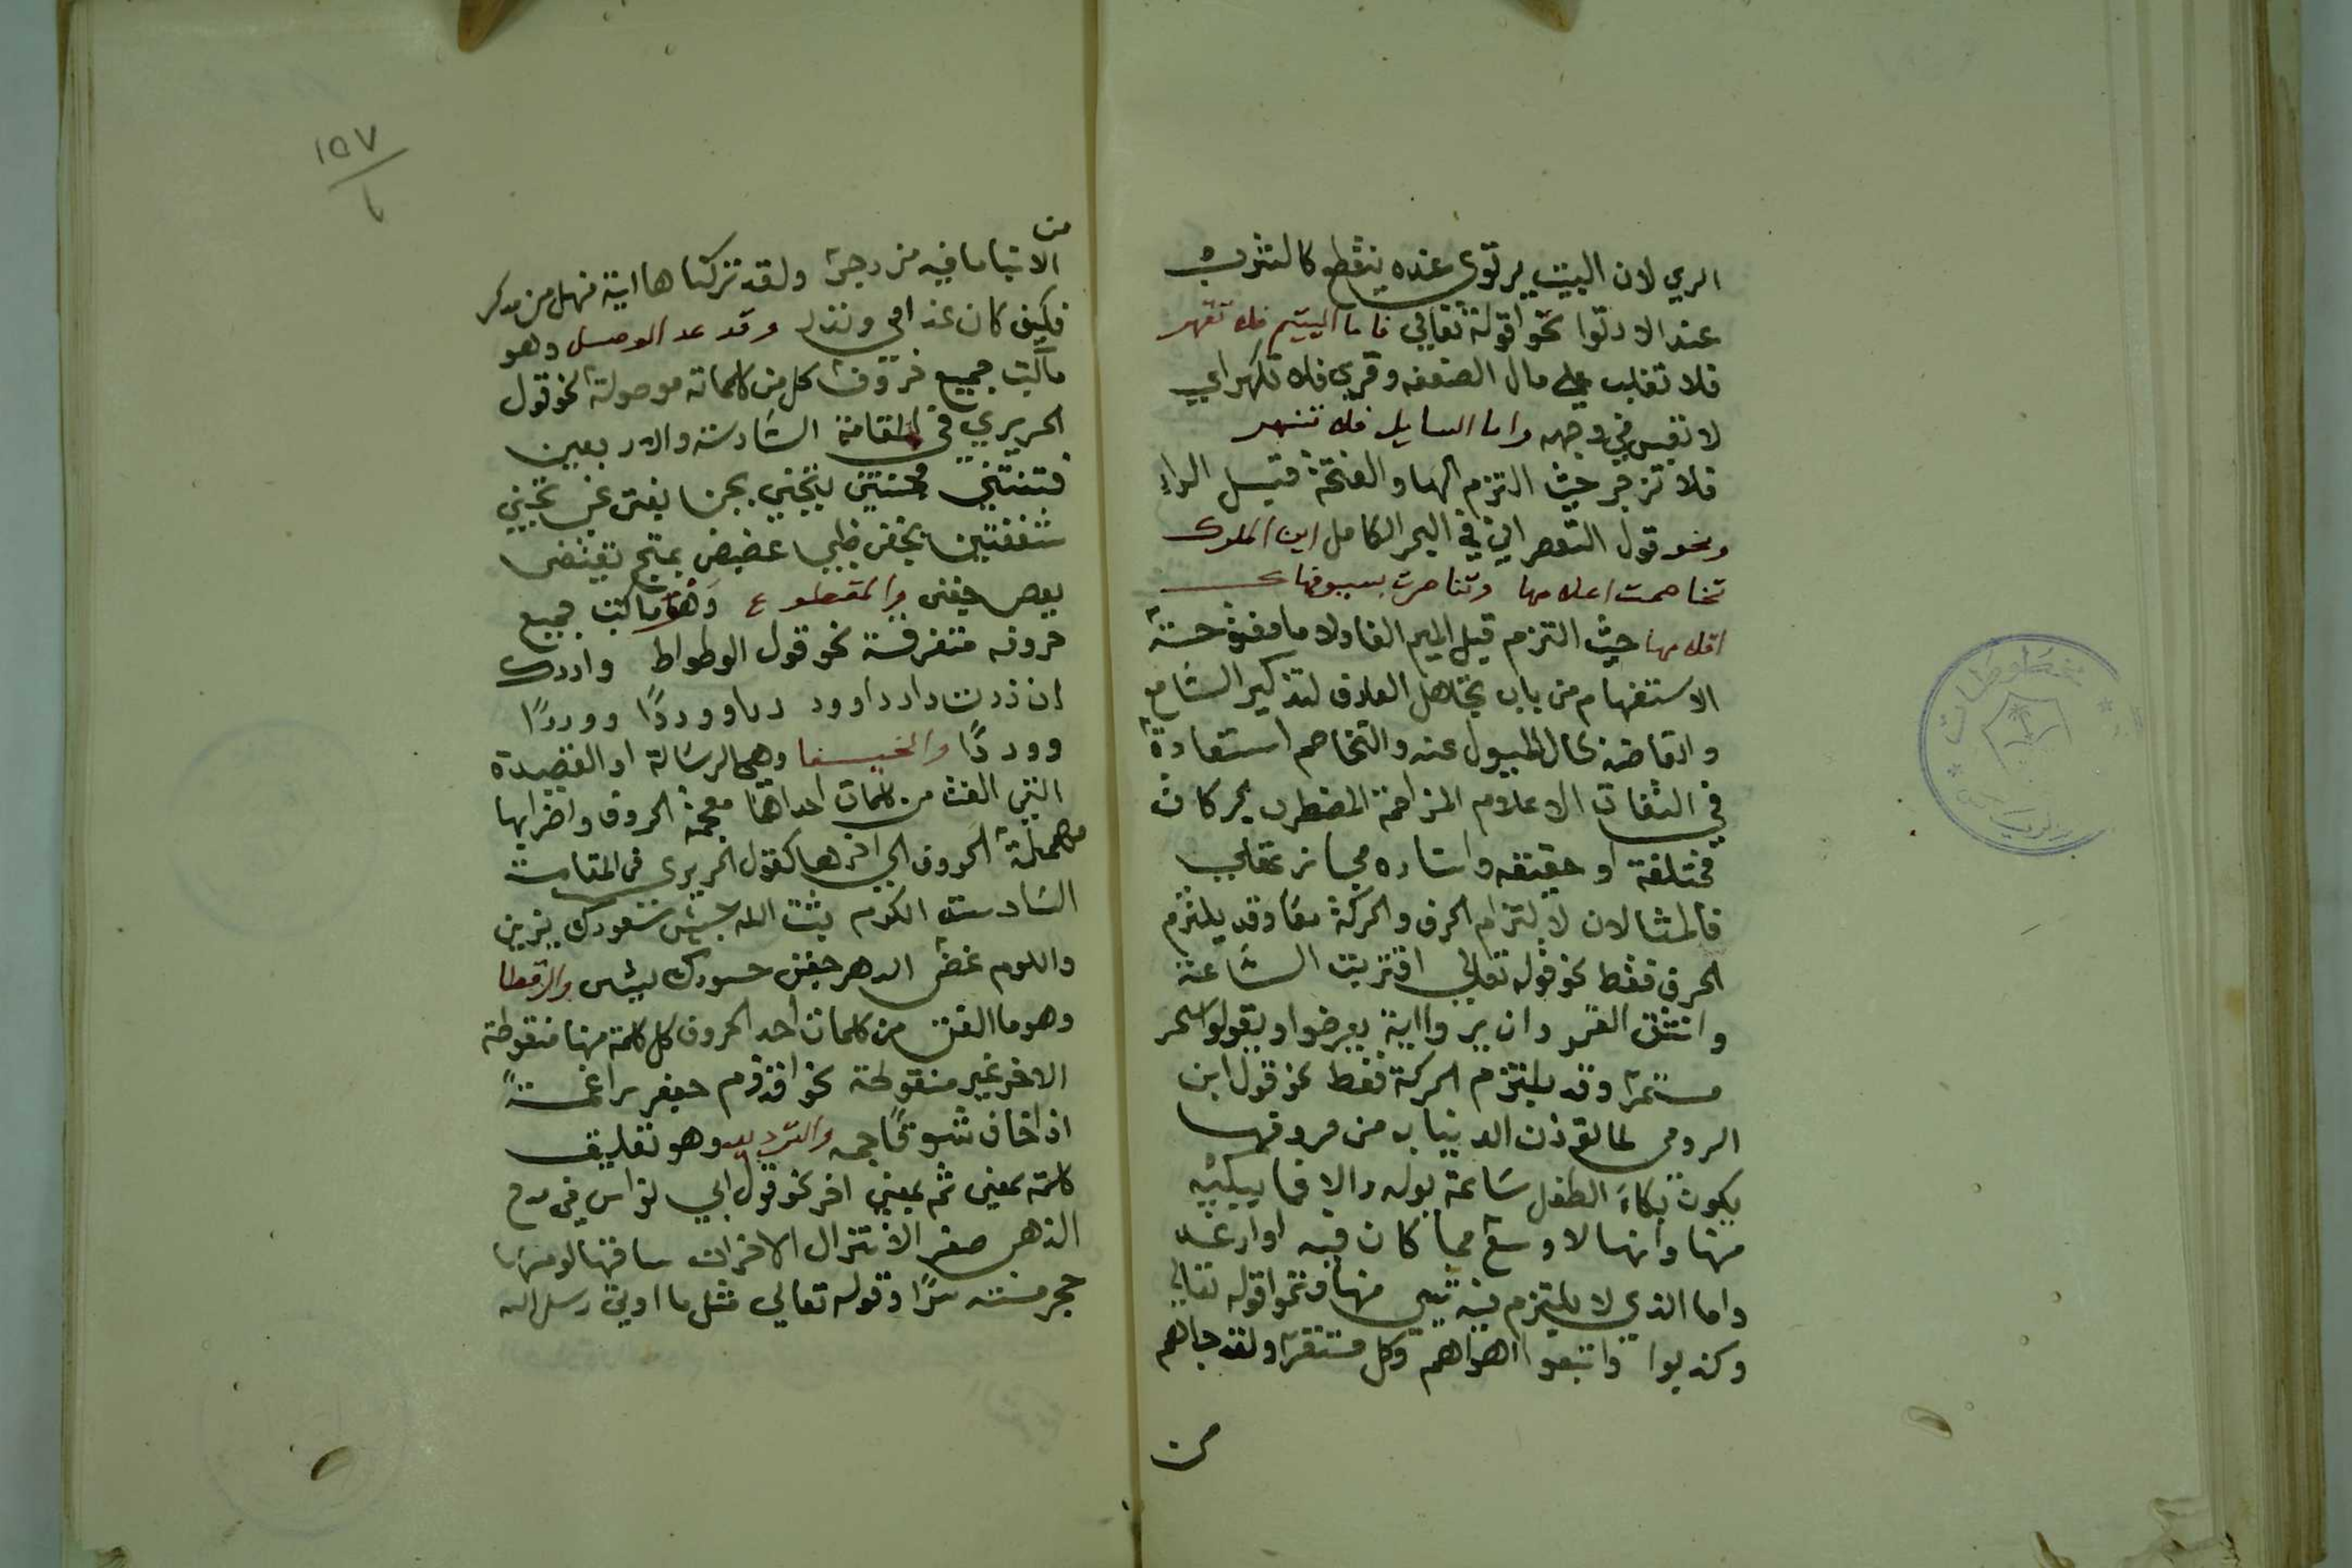 الري لان البيت يرتوى عنده ينقطع كالشرب
عند الارتوا نحو قوله تعالي فاما اليتيم فلا تقهر
فلا تغلب علي مال الضعفه وقري فلا تكهر اي
لا تعبس في وجهه واما السايل فلا تنهر
فلا تزجر حيث التزم الها والفتحة قبل الرا
ونحو قول في البحر الكامل اين الملوك
تخاصمت اعلامها وتناصرت بسيوفها
اقلامها حيث التزم قبل الميم الفا ولاما مفتوحة
الاستفهام من باب تجاهل العارف لتذكير السامع
حال عنه والتخاصم استعارة
في التفات الاعلام المزاحمة المضطرب بحركات
مختلفة او حقيقه واسناده مجاز عقلي
فالمثالان لالتزام الحرف والحركة معا وقد يلتزم
الحرف فقط نحو قوله تعالي اقتربت الساعة
وانشق القمر وان يروا اية يعرضوا ويقولوا سحر
مستمر وقد يلتزم الحركة فقط نحو قول ابن
الرومي لما تؤذن الدنيا به من صروفها
يكون بكاء الطفل ساعة يولد والا فما يبكيه
منها وانها لاوسع مما كان فيه وارغد
واما الذي لا يلتزم فيه شي منها فنحو قوله تعالي
وكذبوا واتبعوا اهواهم وكل امر مستقر ولقد جاهم
من
١٥٧
من
الانبا ما فيه مزدجر ولقد تركناها اية فهل من مدكر
فكيف كان عذابي ونذر وقد عد الموصل وهو
ما كتب جميع حروف كل من كلماته موصولة نحو قول
الحريري في المقامة السادسة والاربعين
فتنتني فجننتني بتجني بتجن يفتن غب تجني
شغفتني بجفن ظبي غضيض بغنج يقتضي
جفني والمقطوع وهو ما كتب جميع
حروفه متفرقة نحو قول الوطواط وادرك
ان زرت دار داوود دراوودا ووردا
وودا والخيفا وهي الرسالة او القصيدة
التي الفت من كلمات احداها معجمة الحروف واخراها
مهملة الحروف الي اخرها كقول الحريري في المقامة
السادسة الكرم ثبت الله جيش سعودك يزين
واللوم غض الدهر جفن حسودك يشين والرقطا
وهو ما الفت من كلمات احد الحروف كل كلمة منها منقوطة
الاخر غير منقوطة نحو
اذا خاف والترديد وهو تعليق
كلمة بمعني ثم بمعني اخر نحو قول ابي نواس في مدح
صفر لا تنزل الاحزان ساحتها لو مسها
حجر مسته سرا وقوله تعالي مثل ما اوتي رسل الله